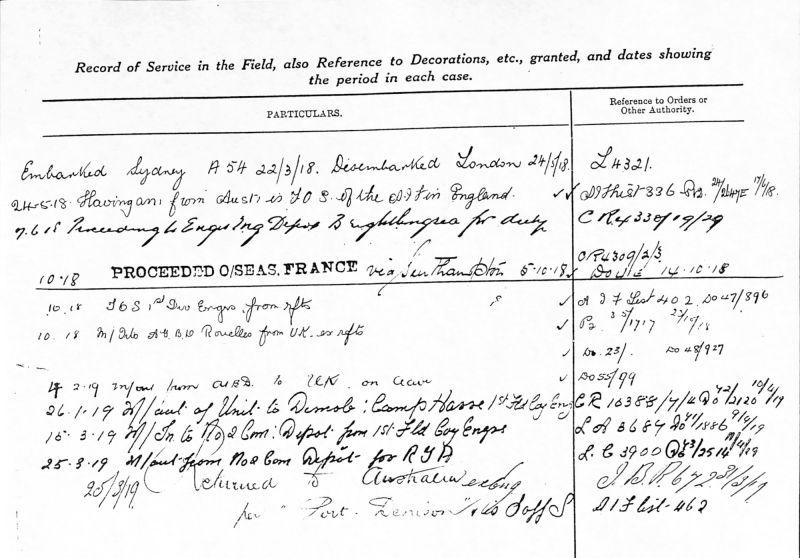 Record of Service in the Field, also Reference to Decorations, etc., granted, and dates showing
the period in each case.
PARTICULARS.
Reference to Orders or
Other Authority.
Embarked Sydney A 54 22/3/18. Disembarked London 24/5/18. L 4321.
24-5-18. Having arr from Aust is T O S. of the A I F in England. A I F list 336
7.6.18 Proceeding to Engrs Trng Depot Brightlingsea for duty CR 4330/19/29
CR 4309/2/3
10.18 PROCEEDED O/SEAS, FRANCE via Southampton 5-10-18 14-10-18
10.18 T O S 1st Div Engrs. from rfts A I F List 402 DO 47/896
10.18 M/Into A G B D Rouelles from U.K. ex rfts
DO 23/. DO 48/927
2.19 M/out from to UK on DO 55/99
26.1.19 M/out of Unit to Demob: Camp Havre 1st Fld Coy Eng CR 10388/7/4
15-3-19 M/In to No 2 Com: Depot from 1st Fld Coy Engrs L A 3687
25-3-19 M/out from No 2 Com Depot for R T A L. C 3900
25/3/19. Returned to Australia
per "Port Denison" A I F list 462